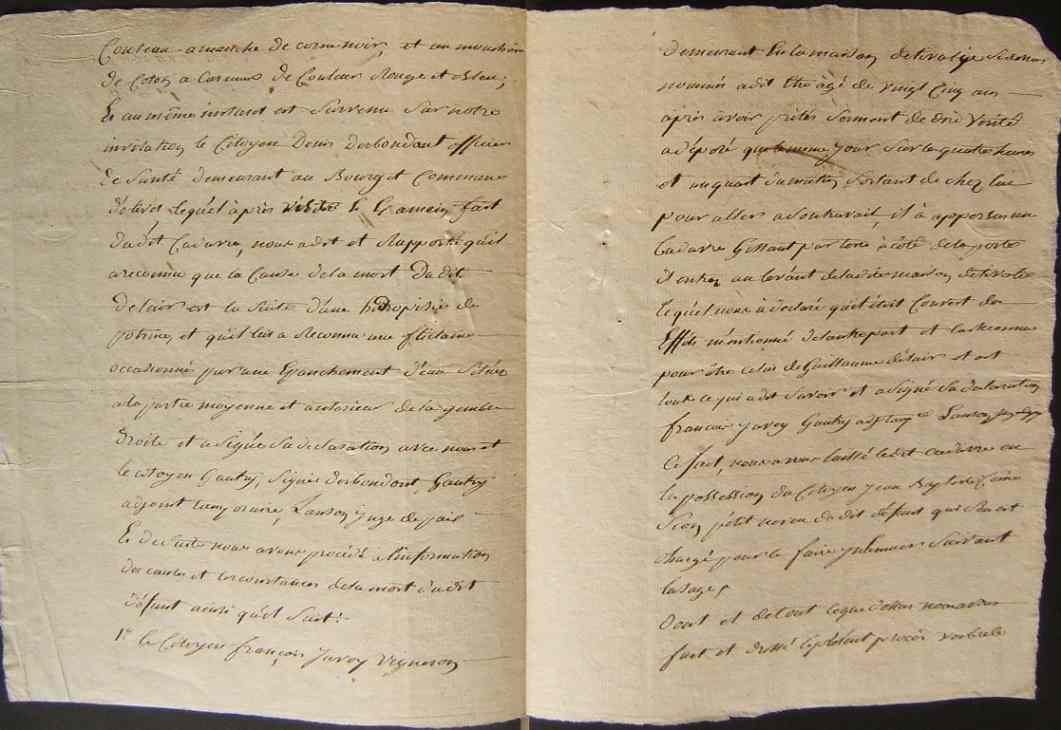 Couteau a manche de corne noir, et un mouchoir
de Coton a Careaux de Couleur Rouge et bleu;
Et au même instant est Survenu Sur notre
invitation le Citoyen Denis Desbondant officier
de Santé demeurant au Bourg et Commune
d'olivet Lequel après visite et Examen fait
dudit Cadavre, nous a dit et Rapporté qu'il
a reconnu que la Cause de la mort Du dit
Delair est la Suite d'une hidropisie de
potrine, et qu'il lui a Reconnu une
occasionné par une Epanchement d'eau
a la partie moyenne et exterieur de la gambe
Droite et a Signé Sa declaration avec nous et
le citoyen Gautry, Signé Desbondant, Gautry
adjoint temporaire, Lanson juge de paix
Et de Suite nous avons procédé a l'information
des causes et circonstances de la mort du dit
défunt ainsi qu'il Suit:
1º le Citoyen françois Javoy vigneron
demeurant En la maison
nommés a dit être âgé de vingt Cinq ans
après avoir prêté Serment de dire Vérité
a déposé que jour Sur les quatre heures
et un quart du matin Sortant de chez lui
pour aller a Son travail, il a apperçu un
Cadavre Gissant par terre à côté de la porte
au levant de la maison
lequel nous a déclaré qu'il était Couvert des
Effets mentionné de l'autre part et l'a reconnu
pour être Celui de Guillaume delair et est
tout ce qu'i a dit Savoir et a Signé Sa declaration
françois Javoy Gautry adjt Lanson juge
Ce fait, nous avons laissé ledit cadavre en
la possession du Citoyen Jean Baptiste
petit neveu du dit défunt qui S'en est
chargé pour le faire inhumer Suivant
l'usage,
Dont et de tout ce que dessus nous avons
fait et dressé le présent procès verbal